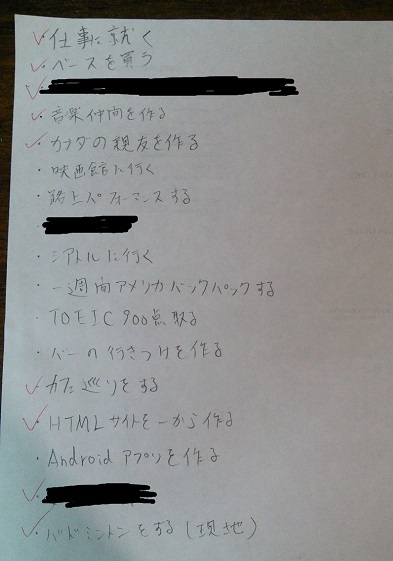 ・仕事に就く
・ベースを買う
・音楽仲間を作る
・カナダの親友を作る
・映画館に行く
・路上パフォーマンスする
・シアトルに行く
・一週間アメリカバックパックする
・TOEIC900点取る
・バーの行きつけを作る
・カフェ巡りをする
・HTMLサイトを一から作る
・Androidアプリを作る
・バドミントンをする(現地)